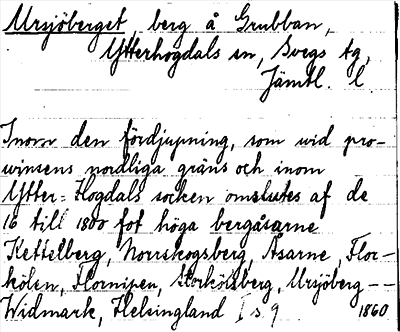 Ursjöberget berg å Grubban,
Ytterhogdals sn, Svegs tg,
Jämtl. l
Inom den fördjupning, som wid pro-
winsens nordliga gräns och inom
Ytter-Hogdals socken omslutes af de
16 till 1800 fot höga bergåsarne
Kettelberg, Norrskogsberg, Åsarne, Flor-
hölen, Flornipen, Storhölsberg, Ursjöberg --
Widmark, Helsingland I s. 9 1860